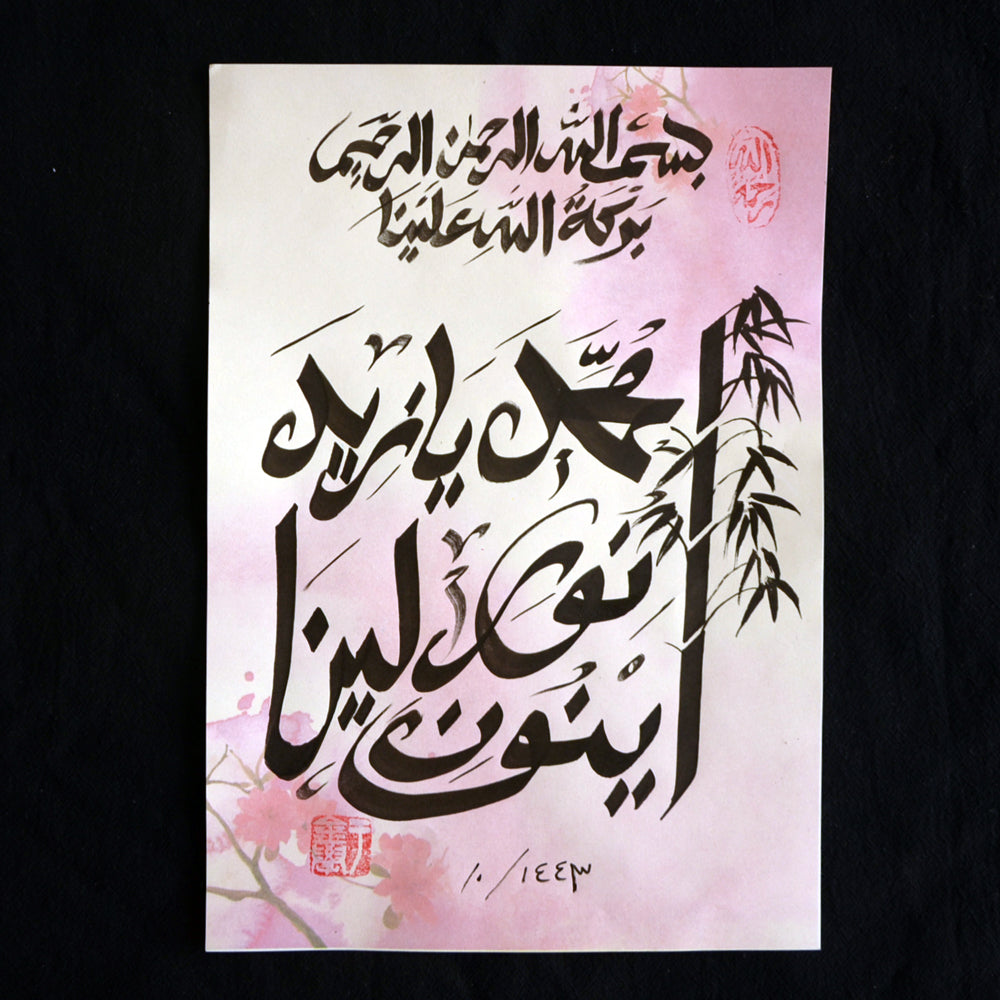 بِسْمِ اللّٰه الرحمٰن الرحيم
بَرَكَةُ اللّٰه عَلَيْنَا
مُحَمّد يازيد
اينون
١٠/١٤٤٣